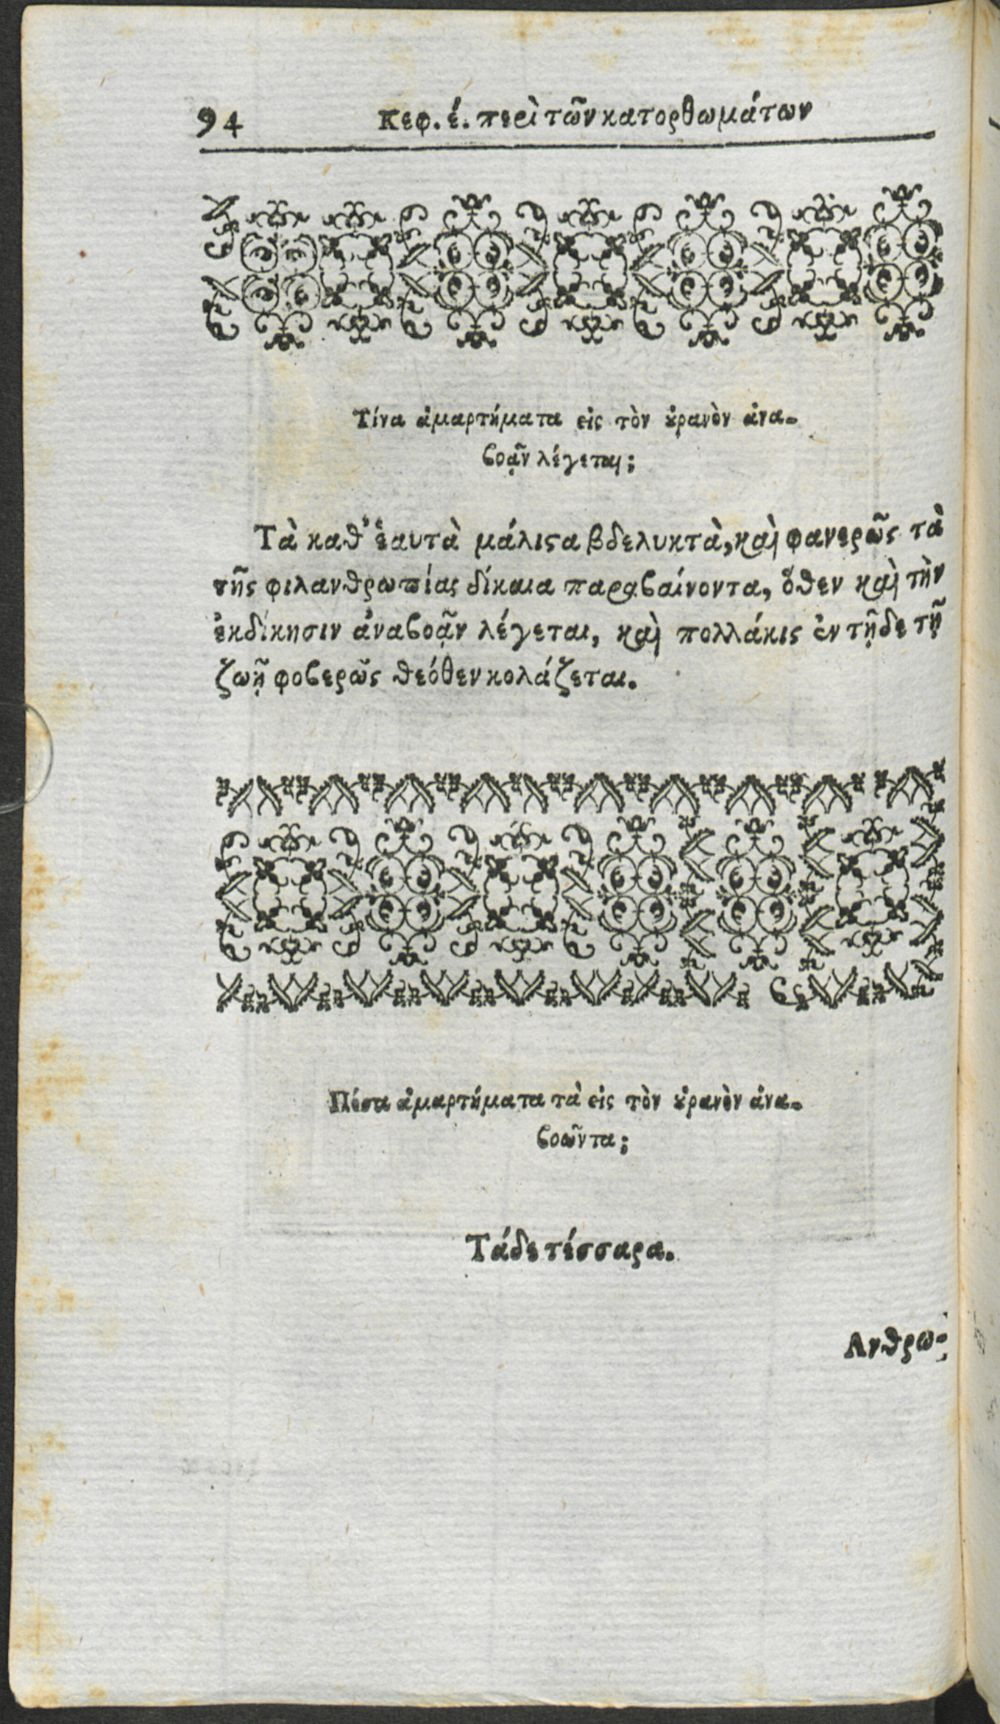 94 Κεφ. έ. περὶ τῶν κατορθωμάτων
Τίνα ἁμαρτήματα εἰς τὸν ȣ̓ρανὸν ἀνα-
βοᾷν λέγεται;
Τὰ καθ' ἑαυτὰ μάλιϛα βδελυκτὰ, καὶ φανερῶς τὰ
τῆς φιλανθρωπίας δίκαια παραβαίνοντα, ὅθεν καὶ τὴν
ἐκδίκησιν ἀναβοᾷν λέγεται, καὶ πολλάκις ἐν τῇδε τῇ
ζωῇ φοβερῶς θεόθεν κολάζεται.
Πόσα ἁμαρτήματα τὰ εἰς τὸν ȣ̓ρανὸν ἀνα-
βοῶντα;
Τάδε τέσσαρα.
Ανθρω-